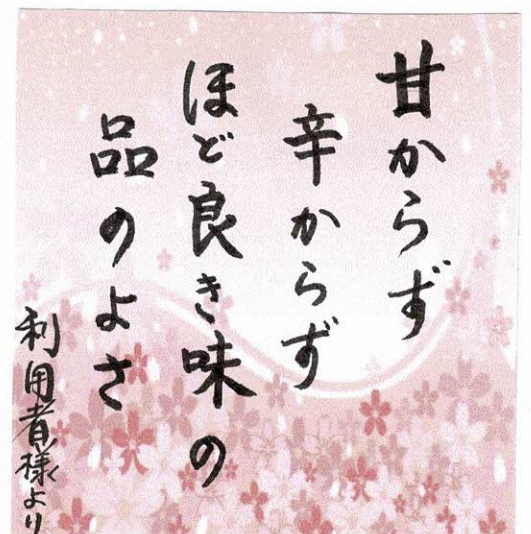 甘からず
辛からず
ほど良き味の
品のよさ
利用者様より